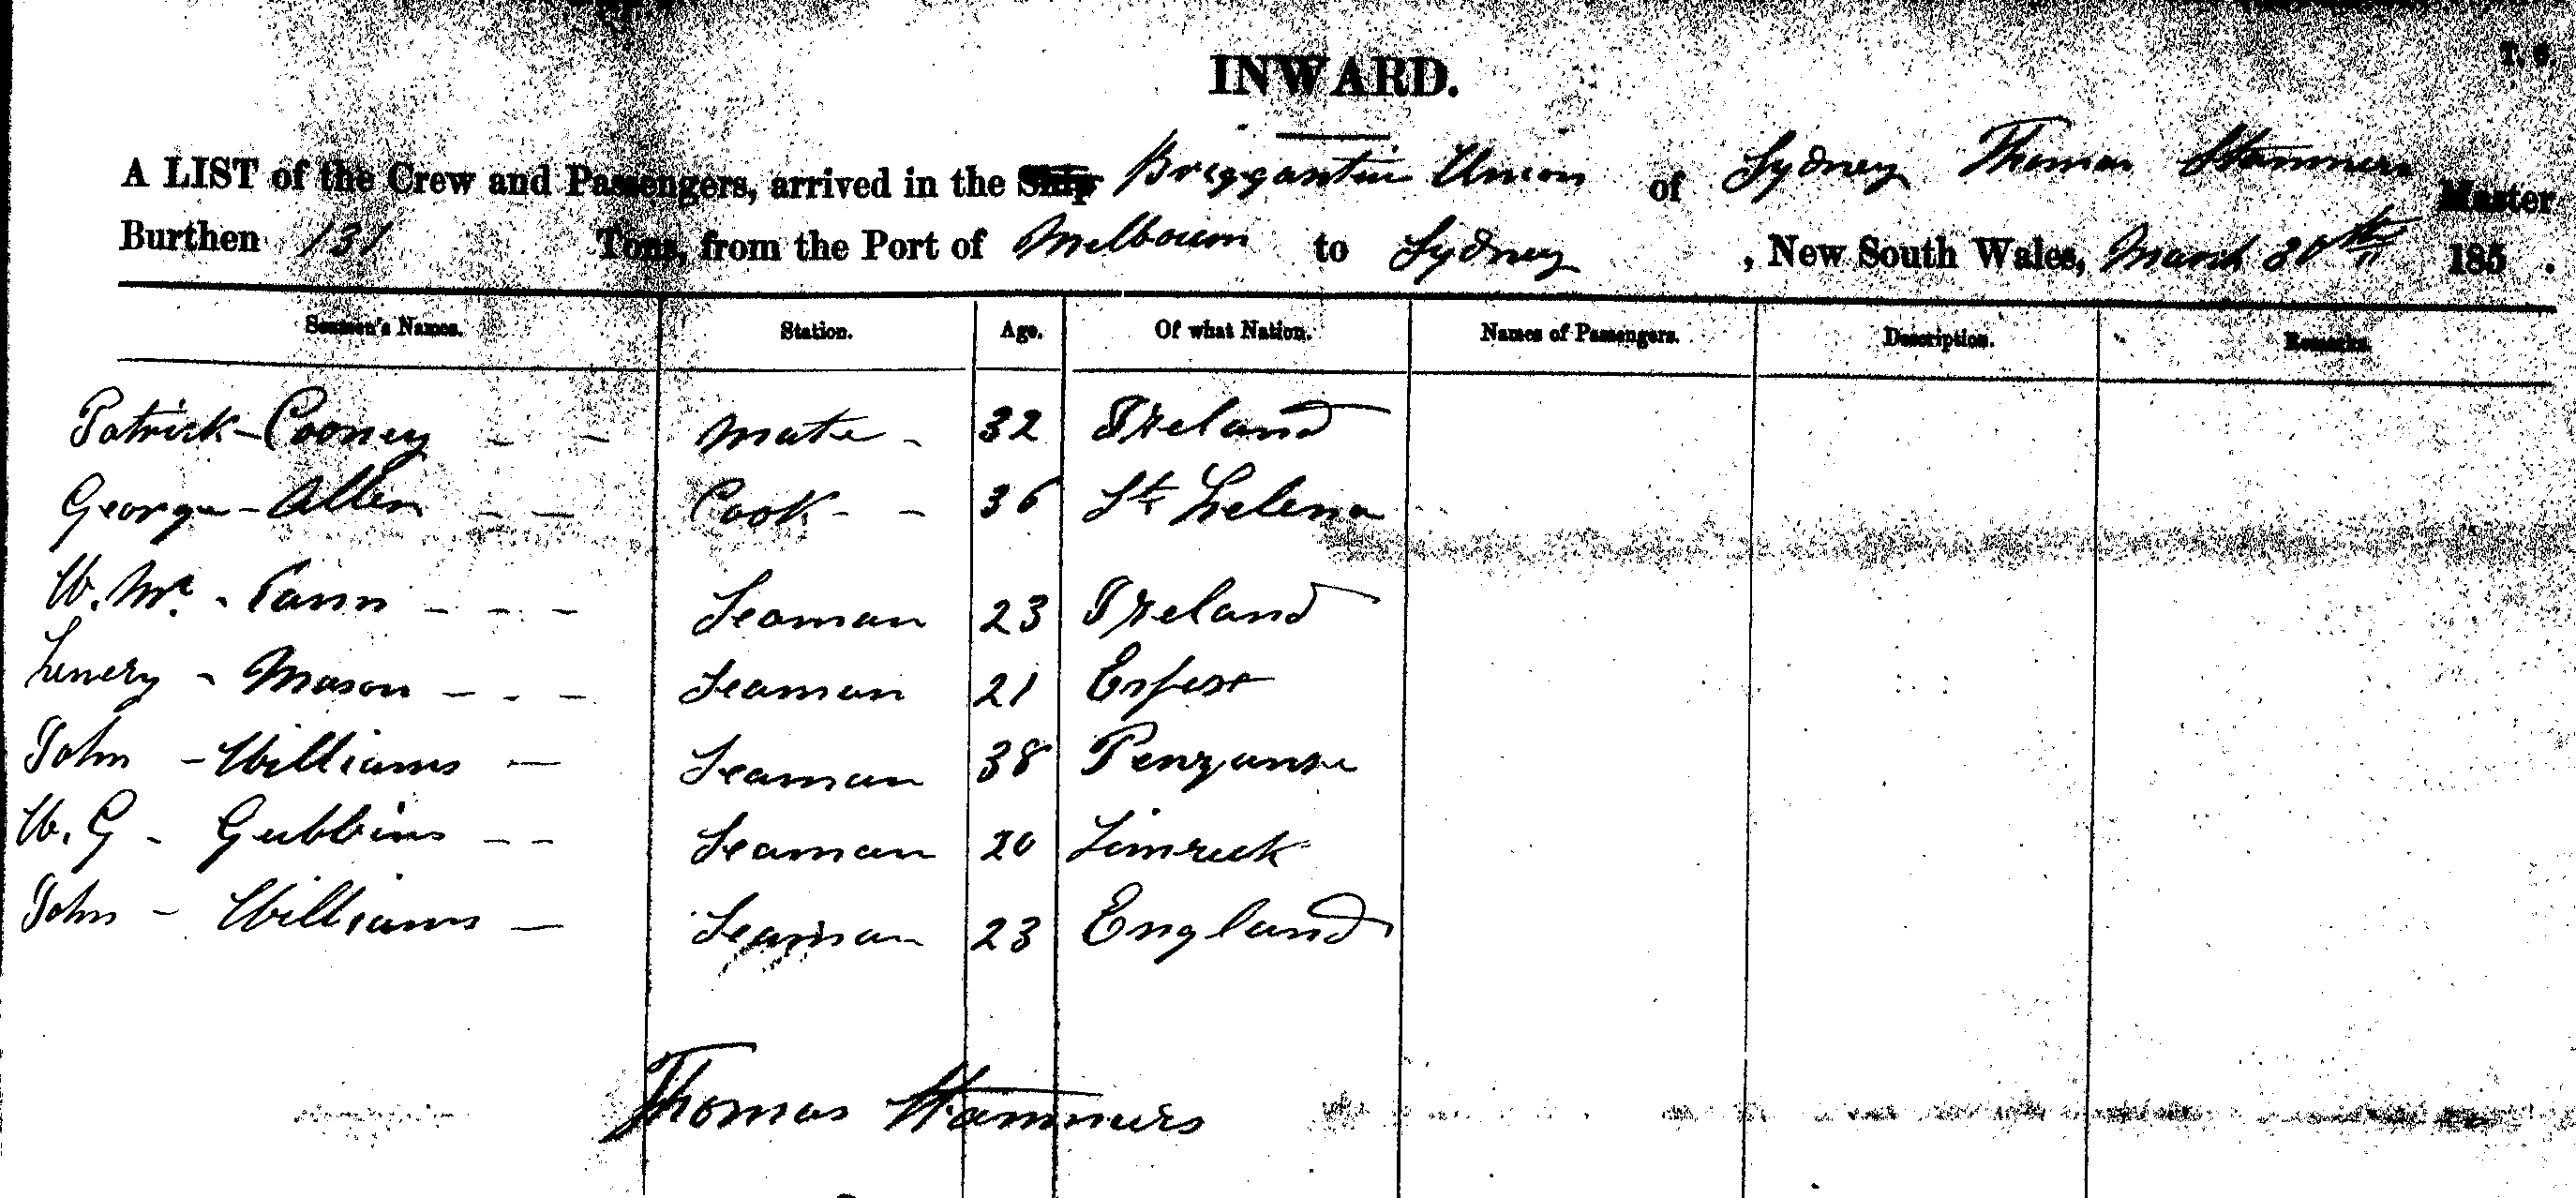 T. S.
INWARD.
A LIST of the Crew and Passengers, arrived in the Ship Briggantine Union of Sydney Thomas Stammers Master
Burthen 131 Tons, from the Port of Melbourn to Sydney , New South Wales, March 30th 185 .
Seamen's Names. Station. Age. Of what Nation. Names of Passengers. Description. Remarks.
Patrick - Cooney - - Mate - 32 Ireland
George - Allen - - Cook - - 36 St Helena
W. Mc - Cann - - - Seaman 23 Ireland
Henery - Mason - - - Seaman 21
John - Williams - Seaman 38 Penzanse
W. G - Gubbins - - Seaman 20 Limreck
John - Williams - Seaman 23 England
Thomas Stammers